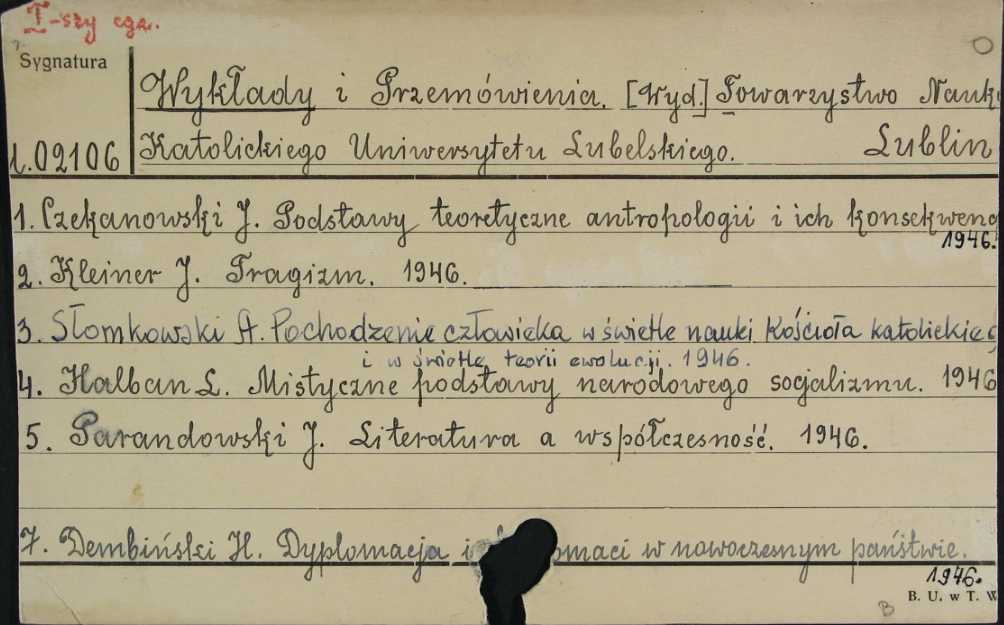 I-szy egz.
Sygnatura
Wykłady i Przemówienia. [Wyd.] Towarzystwo Nauk.
1.02106 Katolickiego Uniwersytetu Lubelskiego. Lublin
1. Czekanowski J. Podstawy teoretyczne antropologii i ich konsekwenc
1946.
2. Kleiner J. Tragizm. 1946.
3. Słomkowski A. Pochodzenie człowieka w świetle nauki Kościoła katolickieg
i w świetle teorii ewolucji. 1946.
4. Halban L. Mistyczne podstawy narodowego socjalizmu. 1946
5. Parandowski J. Literatura a współczesność. 1946.
7. Dembiński H. Dyplomacja i omaci w nowoczesnym państwie.
1946.
B. U. w T. W
B